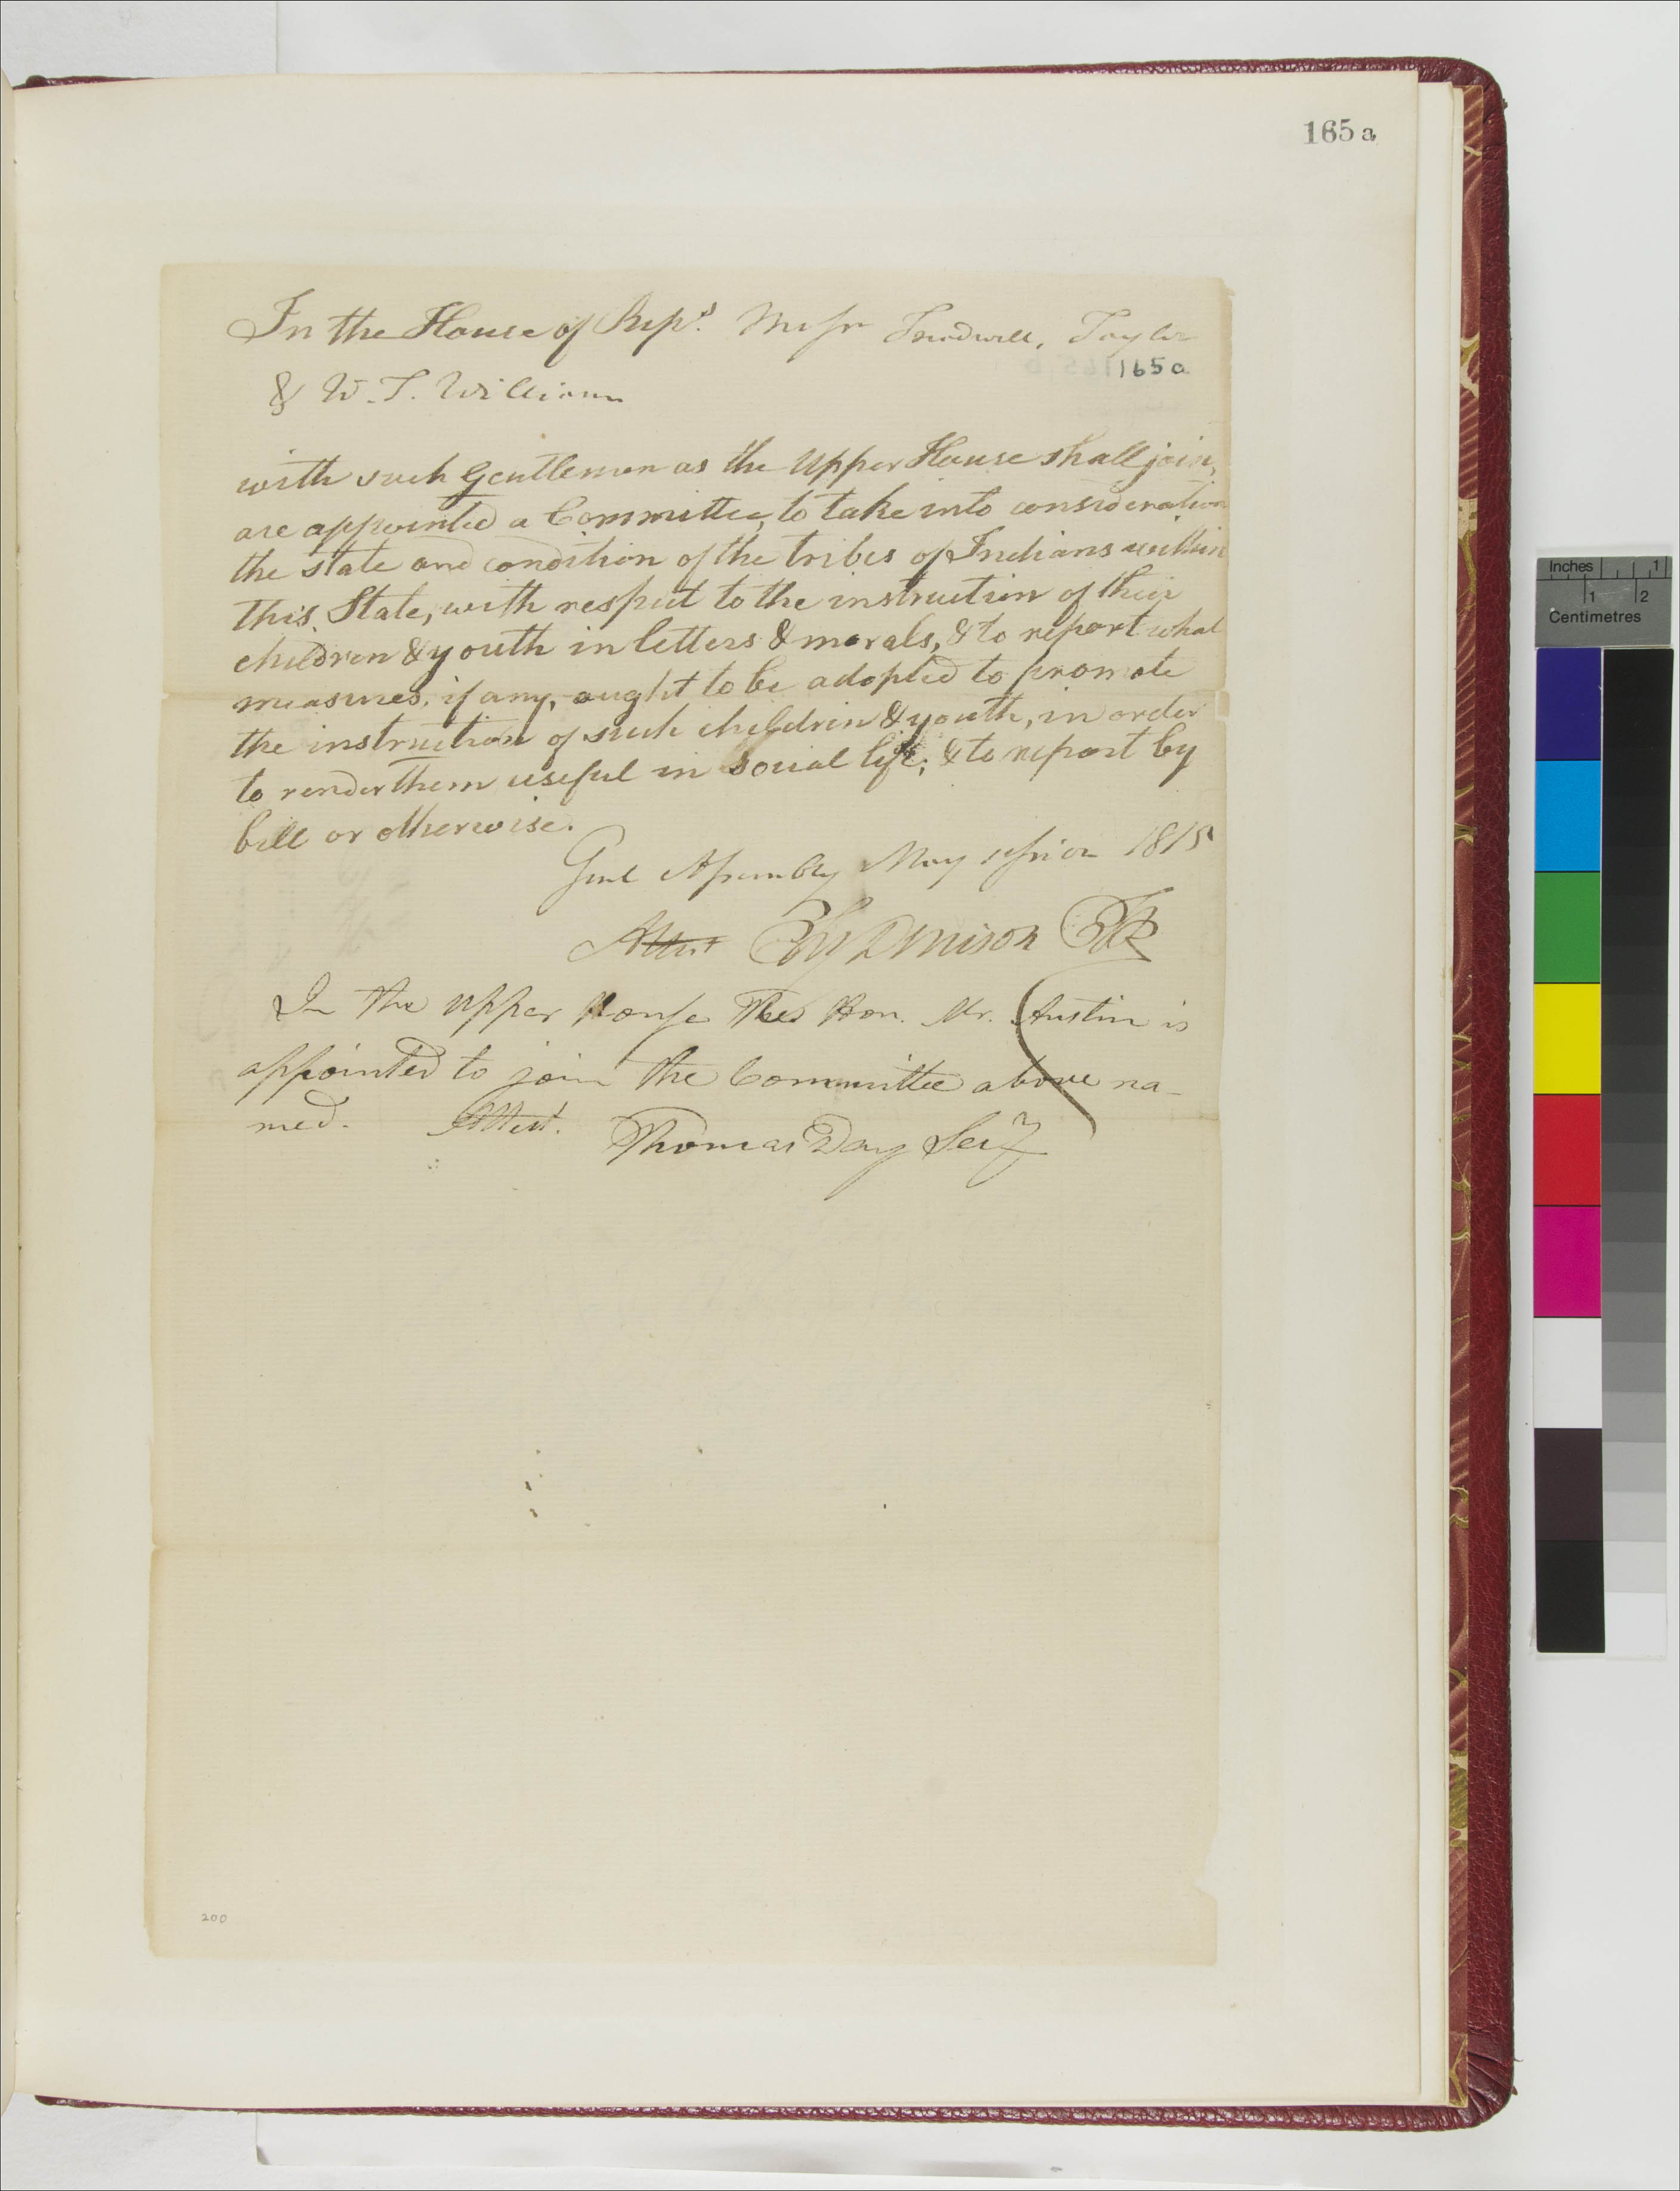 165 a
In the House of Reps. Messrs Treadwell, Taylor
165 a
& W. T. Williams
with such Gentlemen as the Upper House shall join,
are appointed a Committee, to take into consideration
the state and condition of the tribes of Indians within
this State, with respect to the instruction of their
children & youth in letters & morals, & to report what
measures, if any, ought to be adopted to promote
the instruction of such children & youth, in order
to render them useful in social life; & to report by
bill or otherwise.
Genl Assembly May session 1815
Attest Chs Denison
In the Upper House The Hon. Mr. Austin is
appointed to join the Committee above na-
med. Attest. Thomas Day Secy
200
Inches 1
1 2
Centimetres